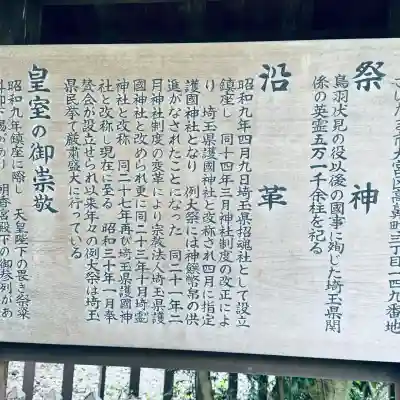 さいたま市大宮区高鼻町三丁目一四九番地
祭神
鳥羽伏見の役以後の國事に殉じた埼玉県関
係の英霊五万一千余柱を祀る
沿革
昭和九年四月九日埼玉県招魂社として設立
鎮座し 同十四年三月神社制度の改正によ
り 埼玉県護國神社と改称され四月に指定
護國神社となり 例大祭には神饌幣帛の供
進がなされたことになった 同二十一年二
月神社制度の変革により宗教法人埼玉県護
國神社と改められ更に同二十三年十月埼霊
神社と改称 同二十七年再び埼玉県護國神
社と改称し現在に至る 昭和三十年一月奉
賛会が設立せられ以来年々の例大祭は埼玉
県民挙て厳粛盛大に行っている
皇室の御崇敬
昭和九年鎮座に際し 天皇陛下の畏き祭粢